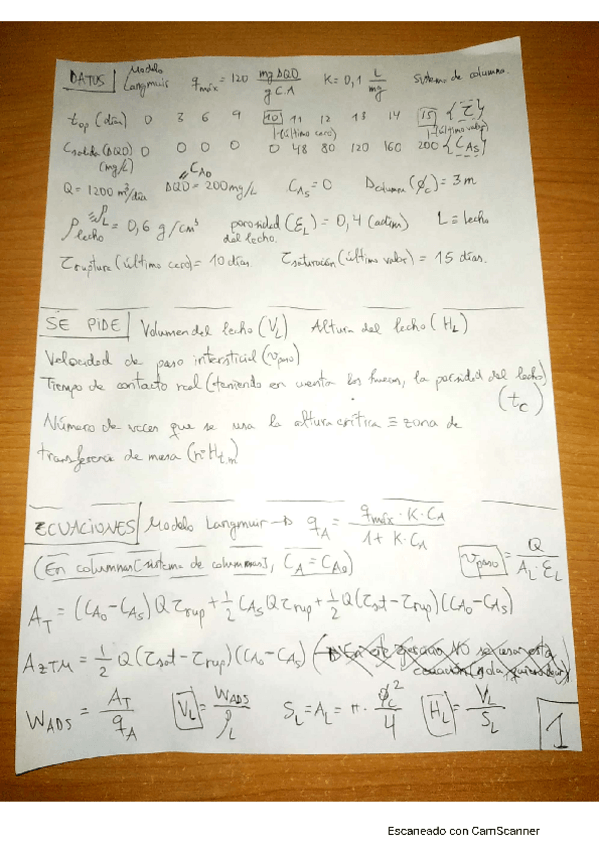 DATOS | Modelo Langmuir qmáx = 120 mg DQO / g C.A K = 0,1 L/mg Sistema de columna.
top (días) 0 3 6 9 10 11 12 13 14 15 {τ}
(último cero) (último valor)
Csalida (DQO) (mg/L) 0 0 0 0 0 48 80 120 160 200 {CAs}
Q = 1200 m³/día DQO = 200 mg/L CAo CAs = 0 Dcolumna (φc) = 3 m
ρlecho ≡ ρL = 0,6 g/cm³ porosidad (εL) = 0,4 L ≡ lecho
del lecho.
τruptura (último cero) = 10 días τsaturación (último valor) = 15 días.
SE PIDE | Volumen del lecho (VL) Altura del lecho (HL)
Velocidad de paso intersticial (vpaso)
Tiempo de contacto real (teniendo en cuenta los huecos, la porosidad del lecho)
(tc)
Número de veces que se usa la altura crítica ≡ zona de
transferencia de masa (nº Ht.m)
ECUACIONES | Modelo Langmuir → qA = qmáx · K · CA / 1 + K · CA
(En columnas [sistema de columnas], CA = CAo) vpaso = Q / AL · εL
AT = (CAo - CAs) Q τrup + 1/2 CAs Q τrup + 1/2 Q (τsat - τrup) (CAo - CAs)
AZTM = 1/2 Q (τsat - τrup) (CAo - CAs)
WADS = AT / qA VL = WADS / ρL SL = AL = π · φc² / 4 HL = VL / SL
1
Escaneado con CamScanner